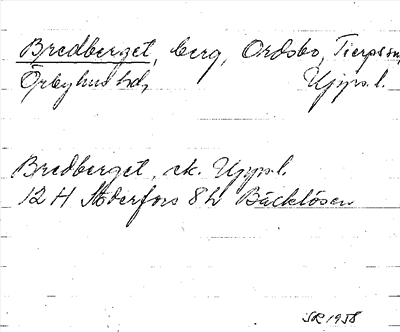 Bredberget, berg, Ordsbo, Tierps sn,
Örbyhus hd, Upps. l.
Bredberget, ek. Upps. l.
12 H Söderfors 8 h Bäcklösen
SR 1958